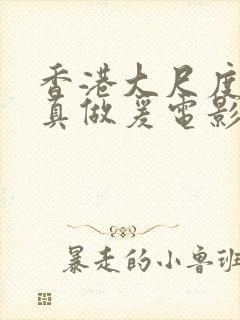 香港大尺度
真做爰电影
暴走的小鲁班